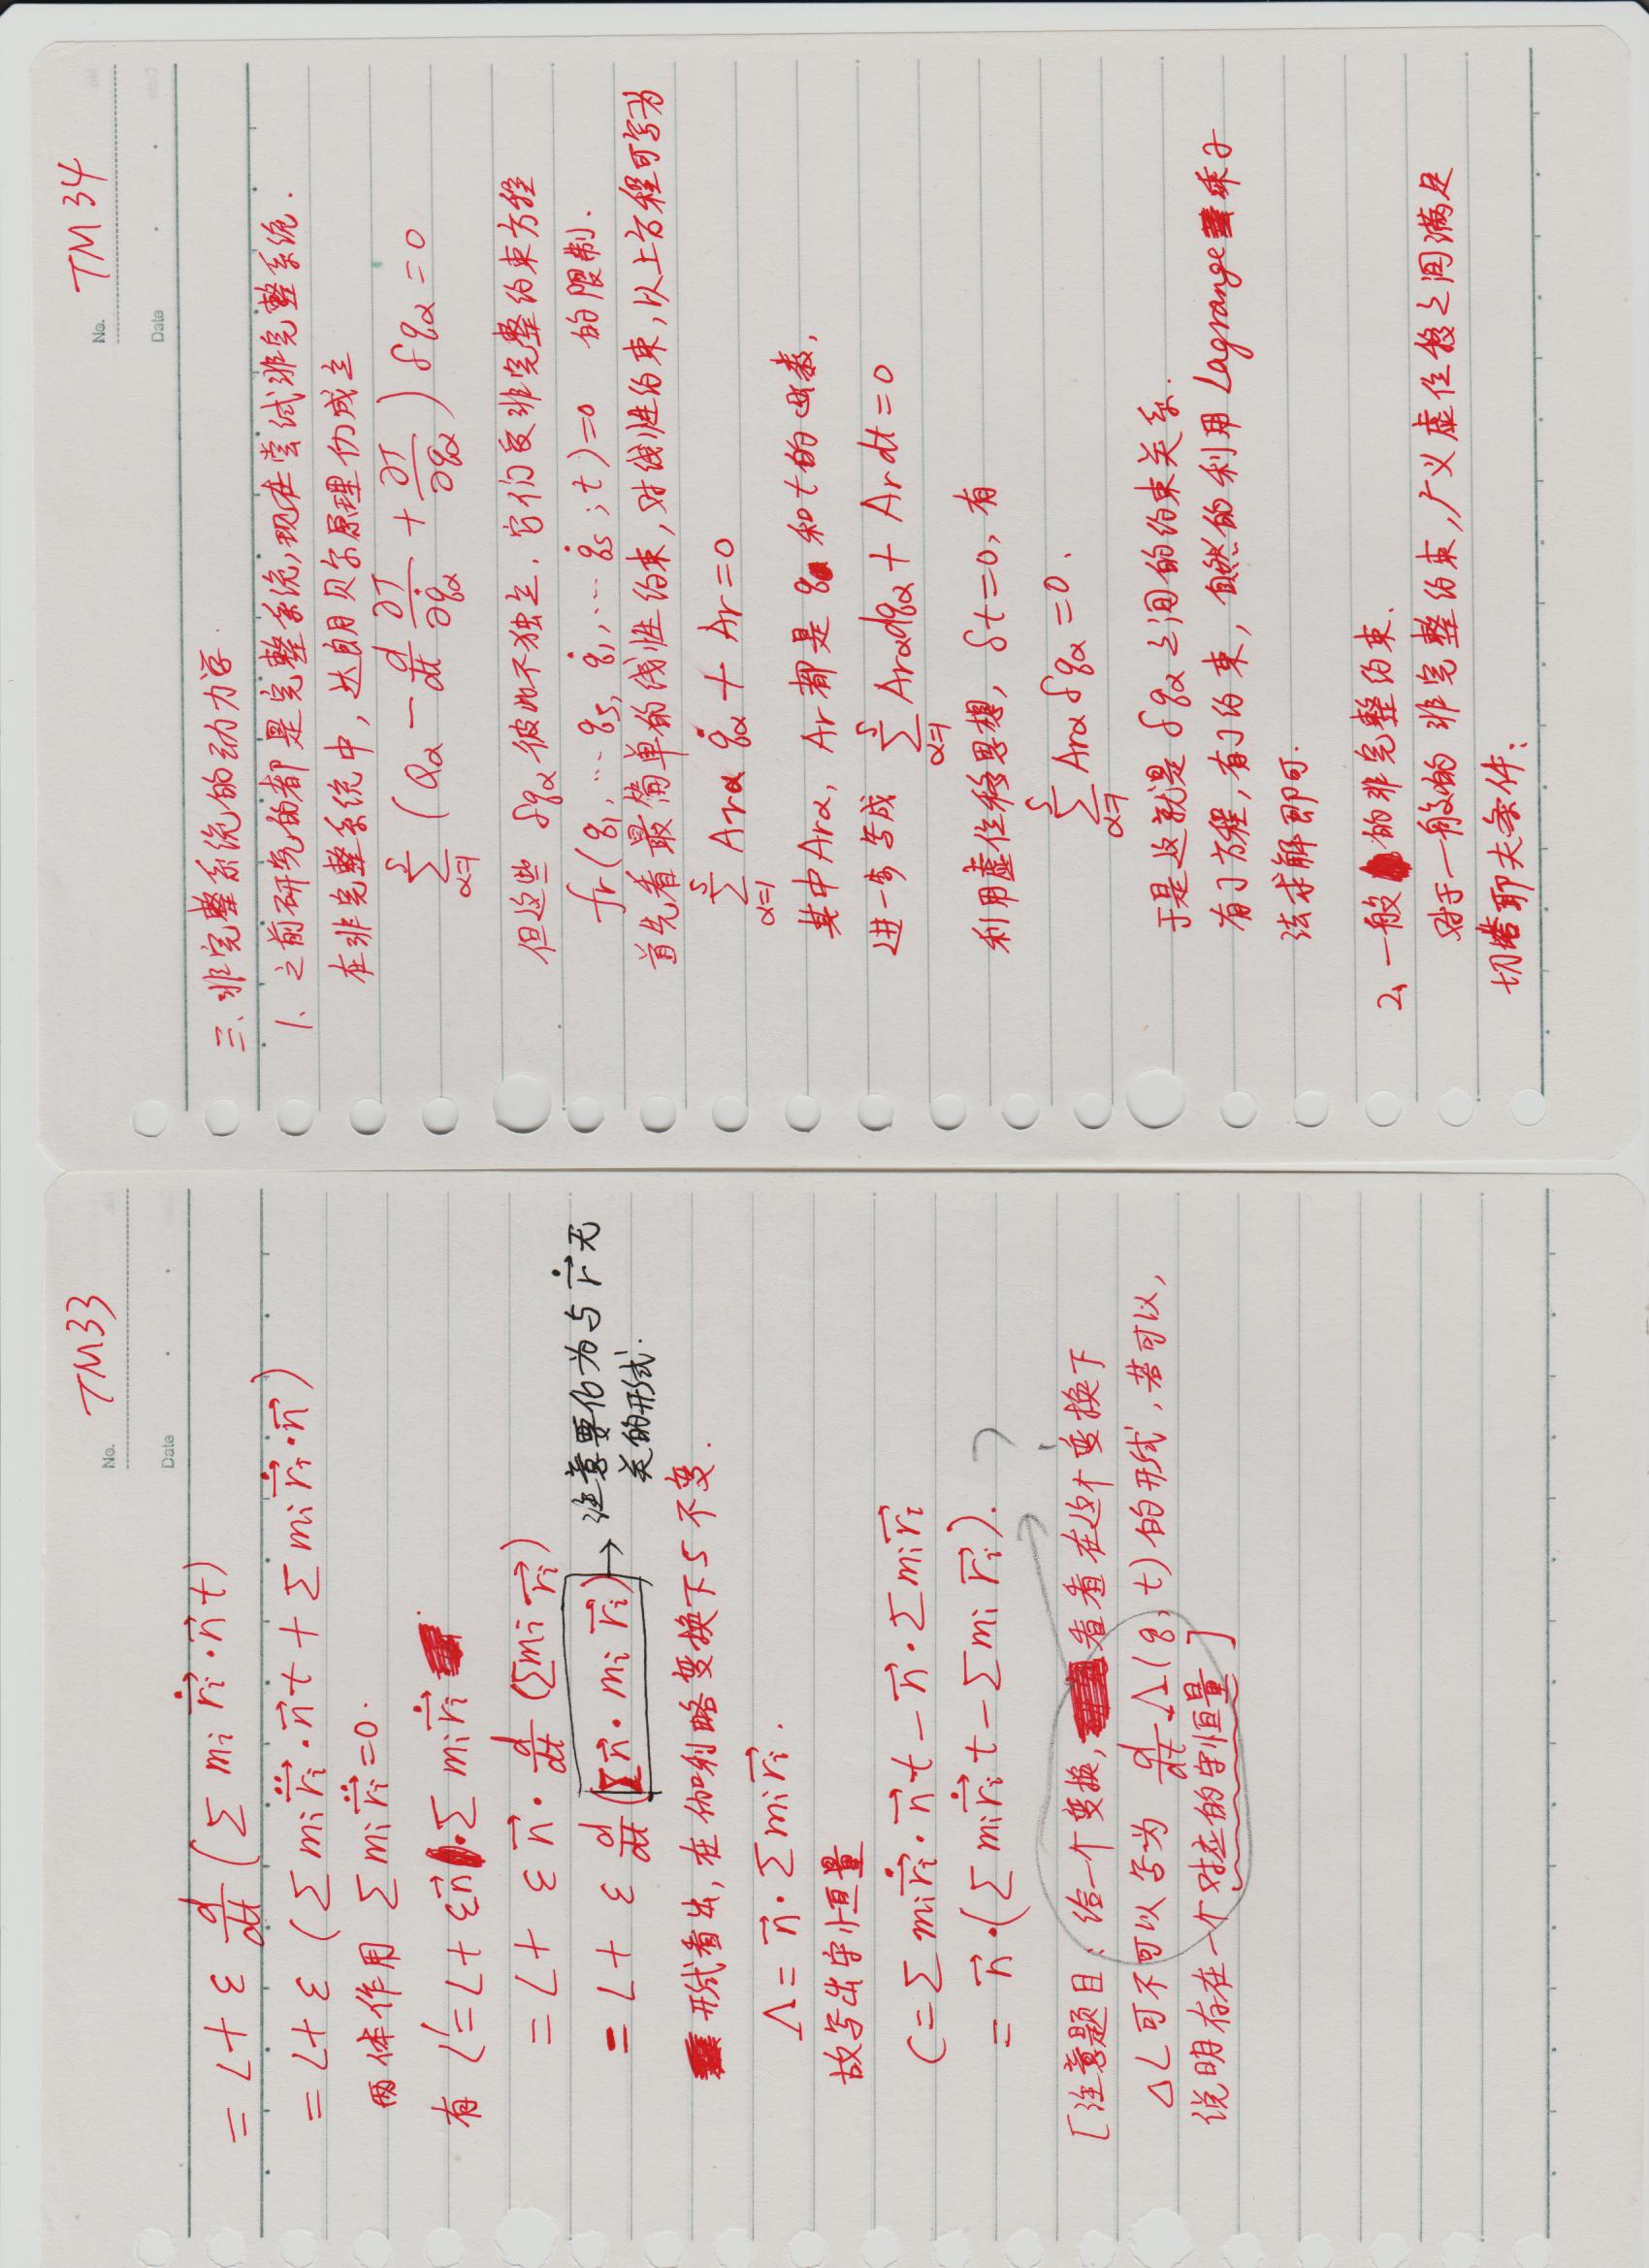 No. TM33
Date
= L + ε d/dt (∑ mᵢ ṙ⃗ᵢ · n⃗ t)
= L + ε (∑ mᵢ r̈⃗ᵢ · n⃗ t + ∑ mᵢ ṙ⃗ᵢ · n⃗)
两体作用 ∑ mᵢ r̈⃗ᵢ = 0.
有 L′ = L + ε n⃗ · ∑ mᵢ ṙ⃗ᵢ
= L + ε n⃗ · d/dt (∑ mᵢ r⃗ᵢ)
= L + ε d/dt (∑ n⃗ · mᵢ r⃗ᵢ) → 注意要化为与 ṙ⃗ 无
关的形式.
形式看出, 在伽利略变换下 S 不变.
Λ = n⃗ · ∑ mᵢ r⃗ᵢ .
故写出守恒量
C = ∑ mᵢ ṙ⃗ᵢ · n⃗ t − n⃗ · ∑ mᵢ r⃗ᵢ
= n⃗ · (∑ mᵢ ṙ⃗ᵢ t − ∑ mᵢ r⃗ᵢ). ?
[注意题目: 给一个变换, 看看在这个变换下
ΔL 可不可以写为 d/dt Λ(q, t) 的形式, 若可以,
说明存在一个对应的守恒量]
No. TM34
Date
三. 非完整系统的动力学.
1. 之前研究的都是完整系统, 现在尝试非完整系统.
在非完整系统中, 达朗贝尔原理仍成立
∑_{α=1}^{s} (Qα − d/dt ∂T/∂q̇α + ∂T/∂qα) δqα = 0
但这些 δqα 彼此不独立. 它们受非完整约束方程
fr(q₁, … qs, q̇₁, … q̇s ; t) = 0 的限制.
首先看最简单的线性约束, 对线性约束, 以上方程可写为
∑_{α=1}^{s} Arα q̇α + Ar = 0
其中 Arα, Ar 都是 q 和 t 的函数,
进一步写成 ∑_{α=1}^{s} Arα dqα + Ar dt = 0
利用虚位移思想, δt = 0, 有
∑_{α=1}^{s} Arα δqα = 0 .
于是这就是 δqα 之间的约束关系.
有了方程, 有了约束, 自然的利用 Lagrange 乘子
法求解即可.
2、一般的非完整约束.
对于一般的 非完整约束, 广义虚位移之间满足
切塔耶夫条件: